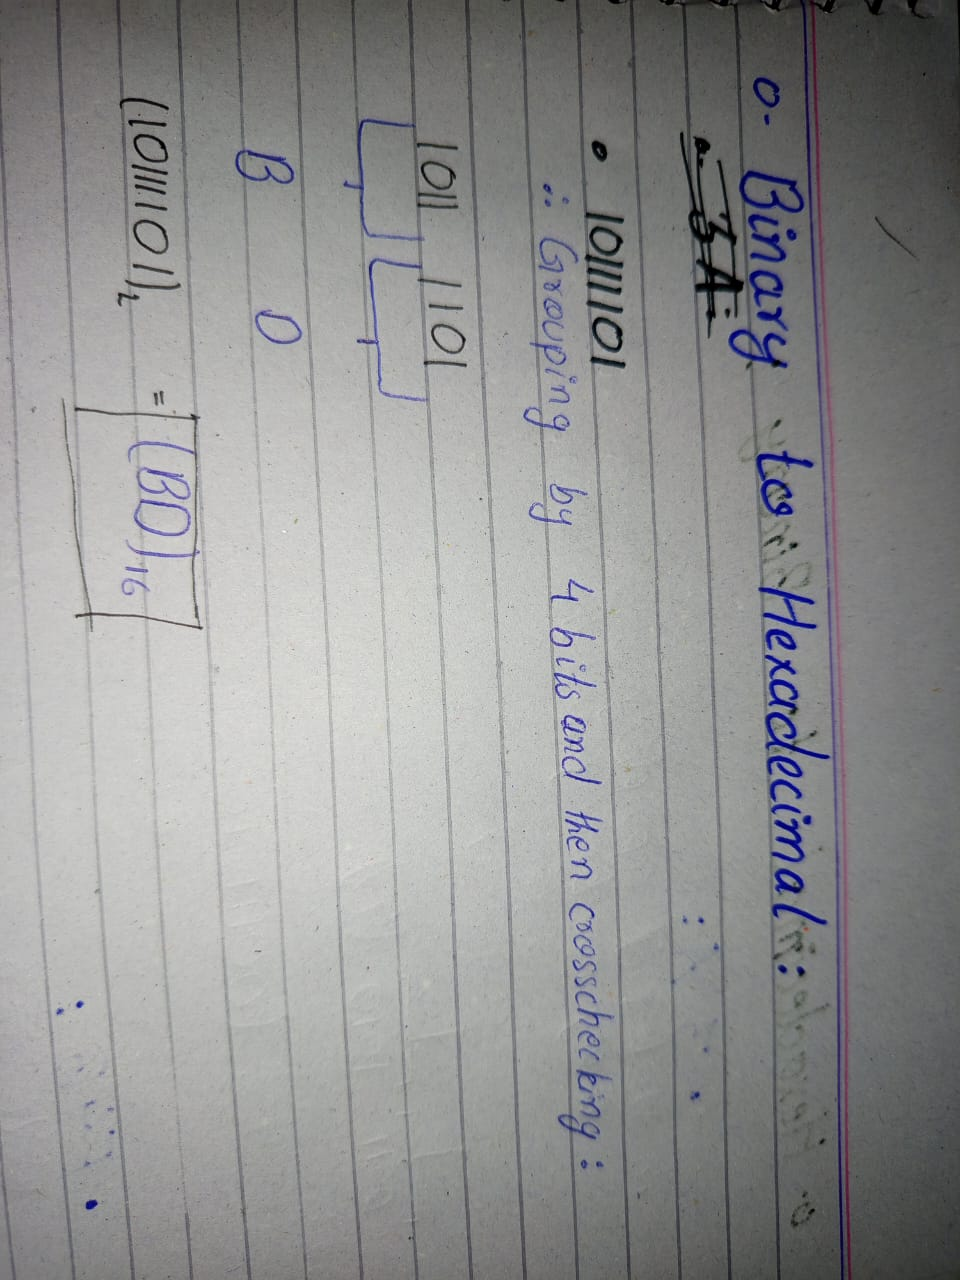 o- Binary to Hexadecimal :
• 10111101
∴ Grouping by 4 bits and then crosschecking :
1011 1101
B D
(10111101)₂ = (BD)₁₆